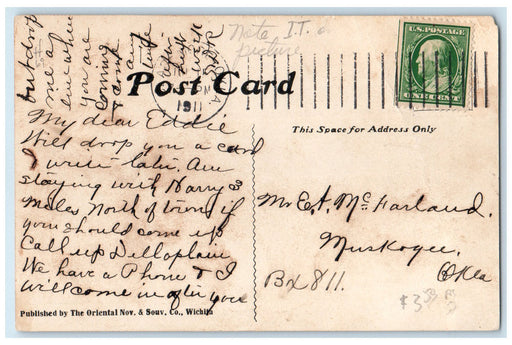 but drop
me a
line when
you are
coming
& come
any
time
Note I.T.
picture
U.S. POSTAGE
Post Card
1911
This Space for Address Only
My dear Eddie
Will drop you a card
I write late. Am
staying with Harry 3
miles North of town if
you should come up
Call up Dellaplain
We have a Phone & I
will come in after you
Mr E.A. McFarland.
Muskogee,
Okla
Bx 811.
$3
Published by The Oriental Nov. & Souv. Co., Wichita